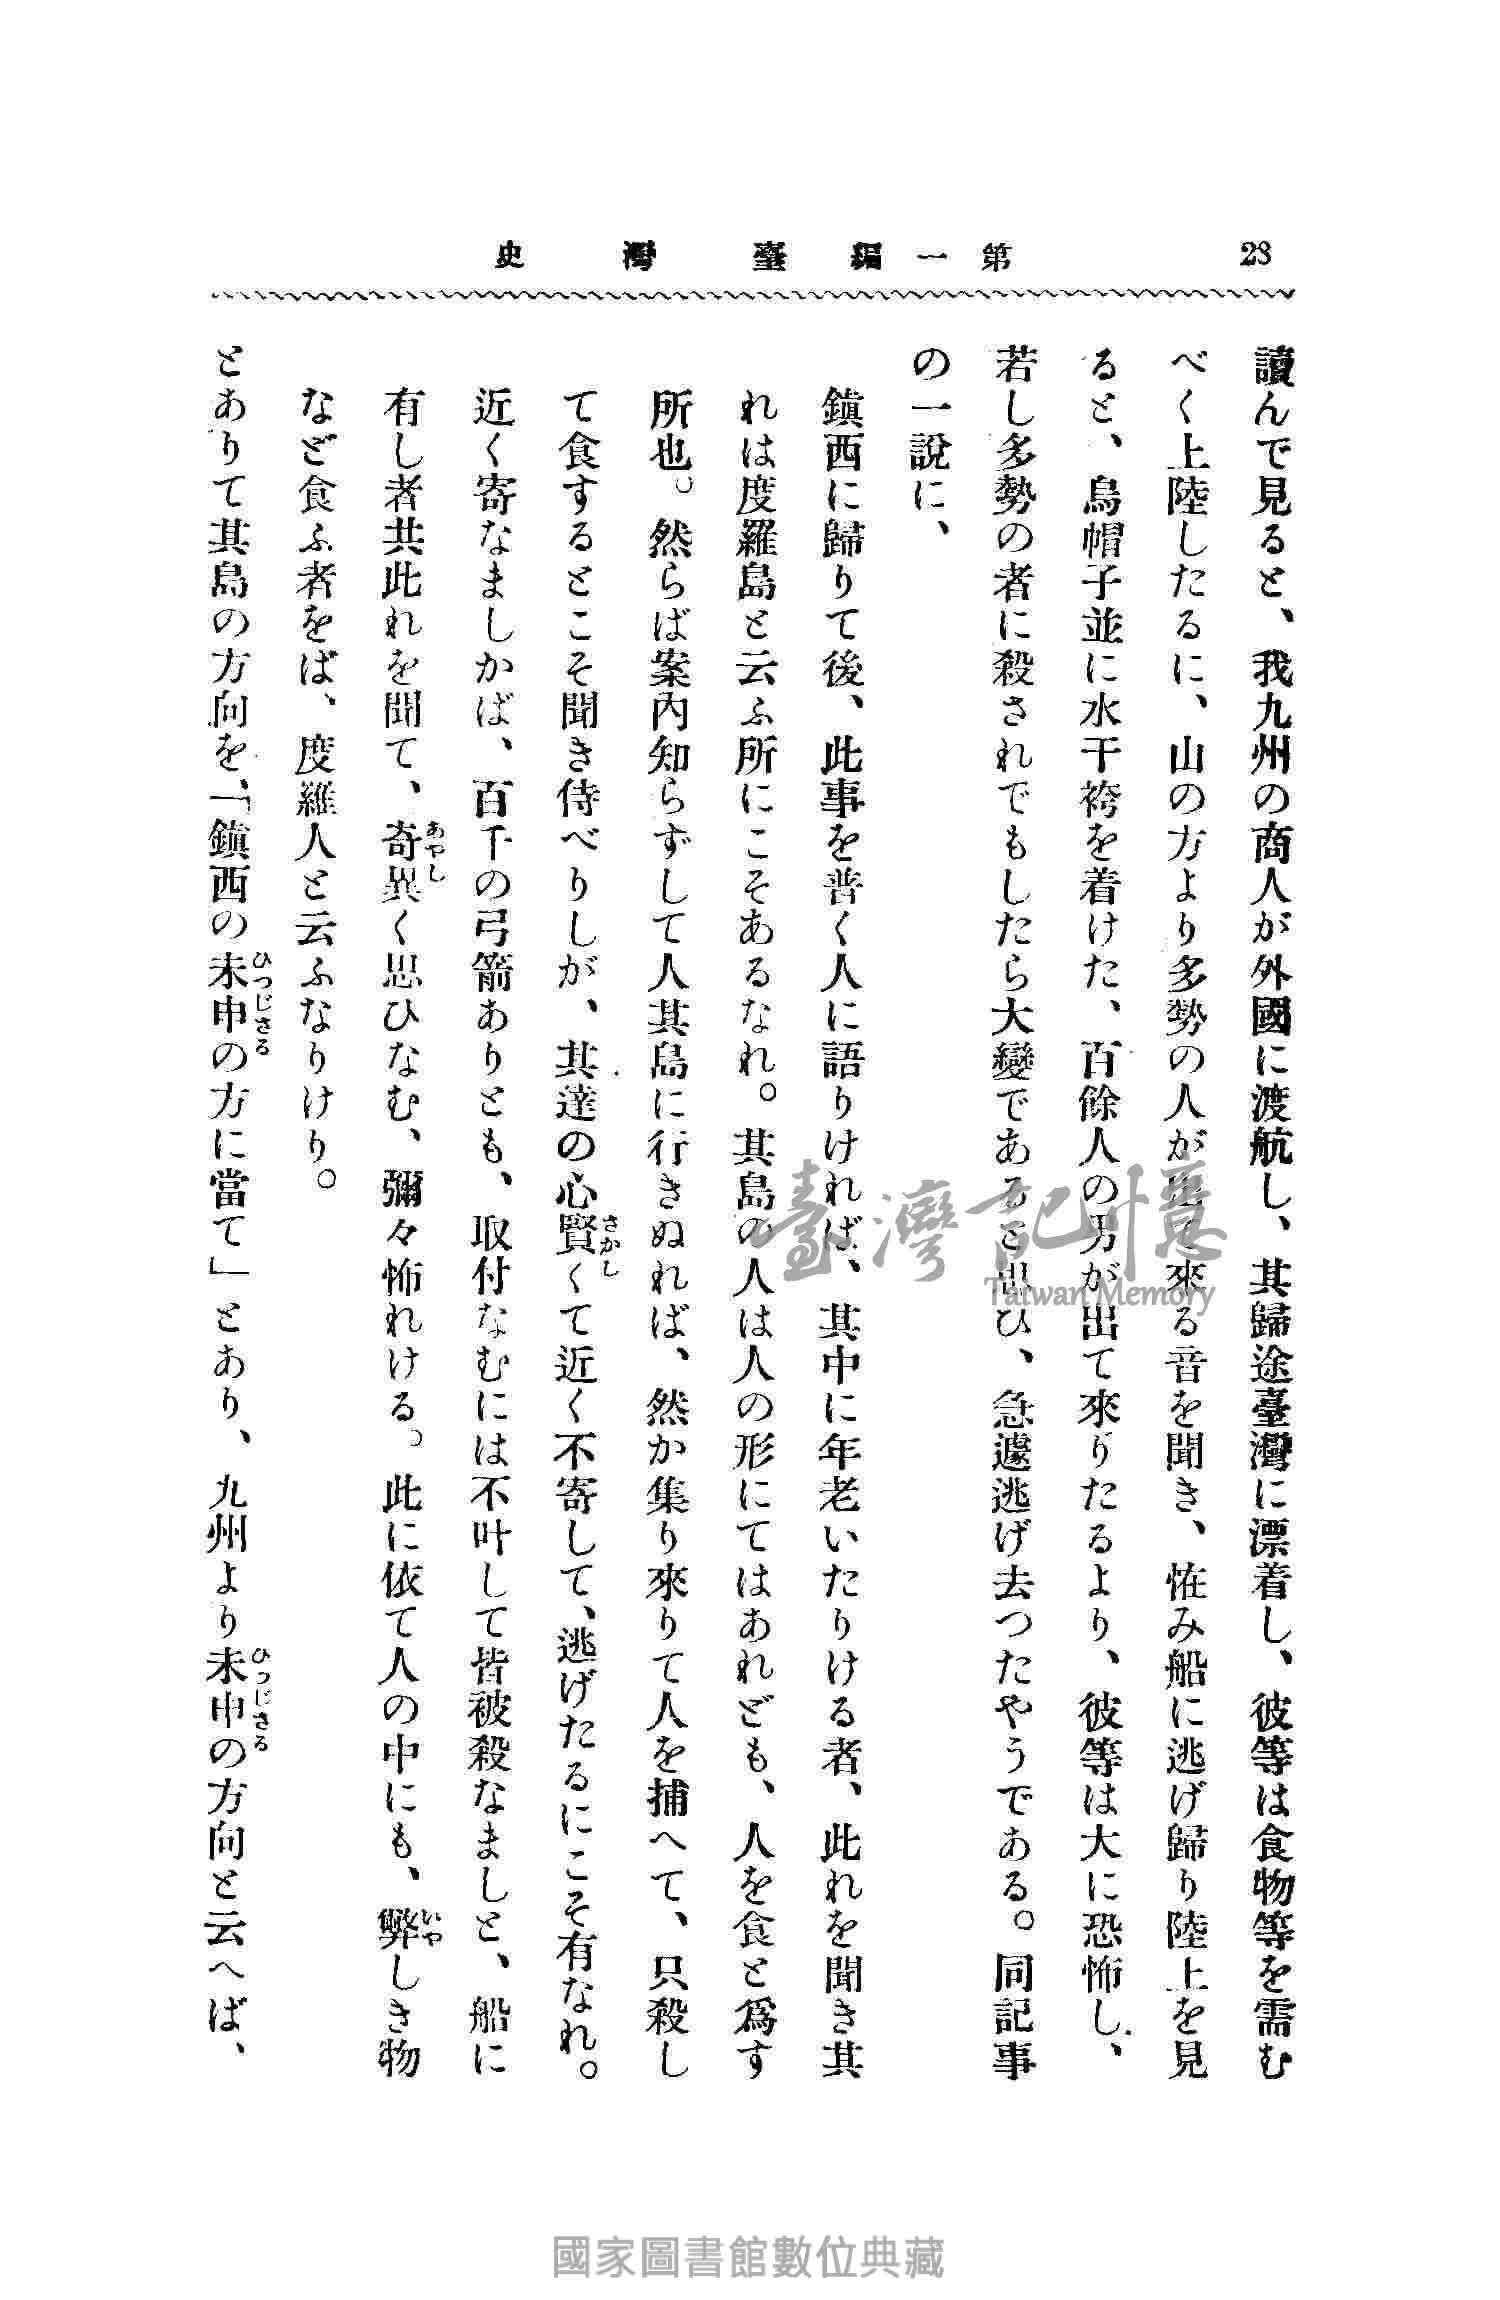 23
第一編 臺灣史
讀んで見ると、我九州の商人が外國に渡航し、其歸途臺灣に漂着し、彼等は食物等を需む
べく上陸したるに、山の方より多勢の人が出て來る音を聞き、恠み船に逃げ歸り陸上を見
ると、烏帽子並に水干袴を着けた、百餘人の男が出て來りたるより、彼等は大に恐怖し、
若し多勢の者に殺されでもしたら大變であると思ひ、急遽逃げ去つたやうである。同記事
の一說に、
鎭西に歸りて後、此事を普く人に語りければ、其中に年老いたりける者、此れを聞き其
れは度羅島と云ふ所にこそあるなれ。其島の人は人の形にてはあれども、人を食と爲す
所也。然らば案內知らずして人其島に行きぬれば、然か集り來りて人を捕へて、只殺し
て食するとこそ聞き侍べりしが、其達の心賢くて近く不寄して、逃げたるにこそ有なれ。
さかし
近く寄なましかば、百千の弓箭ありとも、取付なむには不叶して皆被殺なましと、船に
有し者共此れを聞て、奇異く思ひなむ、彌々怖れける。此に依て人の中にも、弊しき物
あやし
いや
など食ふ者をば、度羅人と云ふなりけり。
とありて其島の方向を、「鎭西の未申の方に當て」とあり、九州より未申の方向と云へば、
ひつじさる
ひつじさる
臺灣記憶
Taiwan Memory
國家圖書館數位典藏